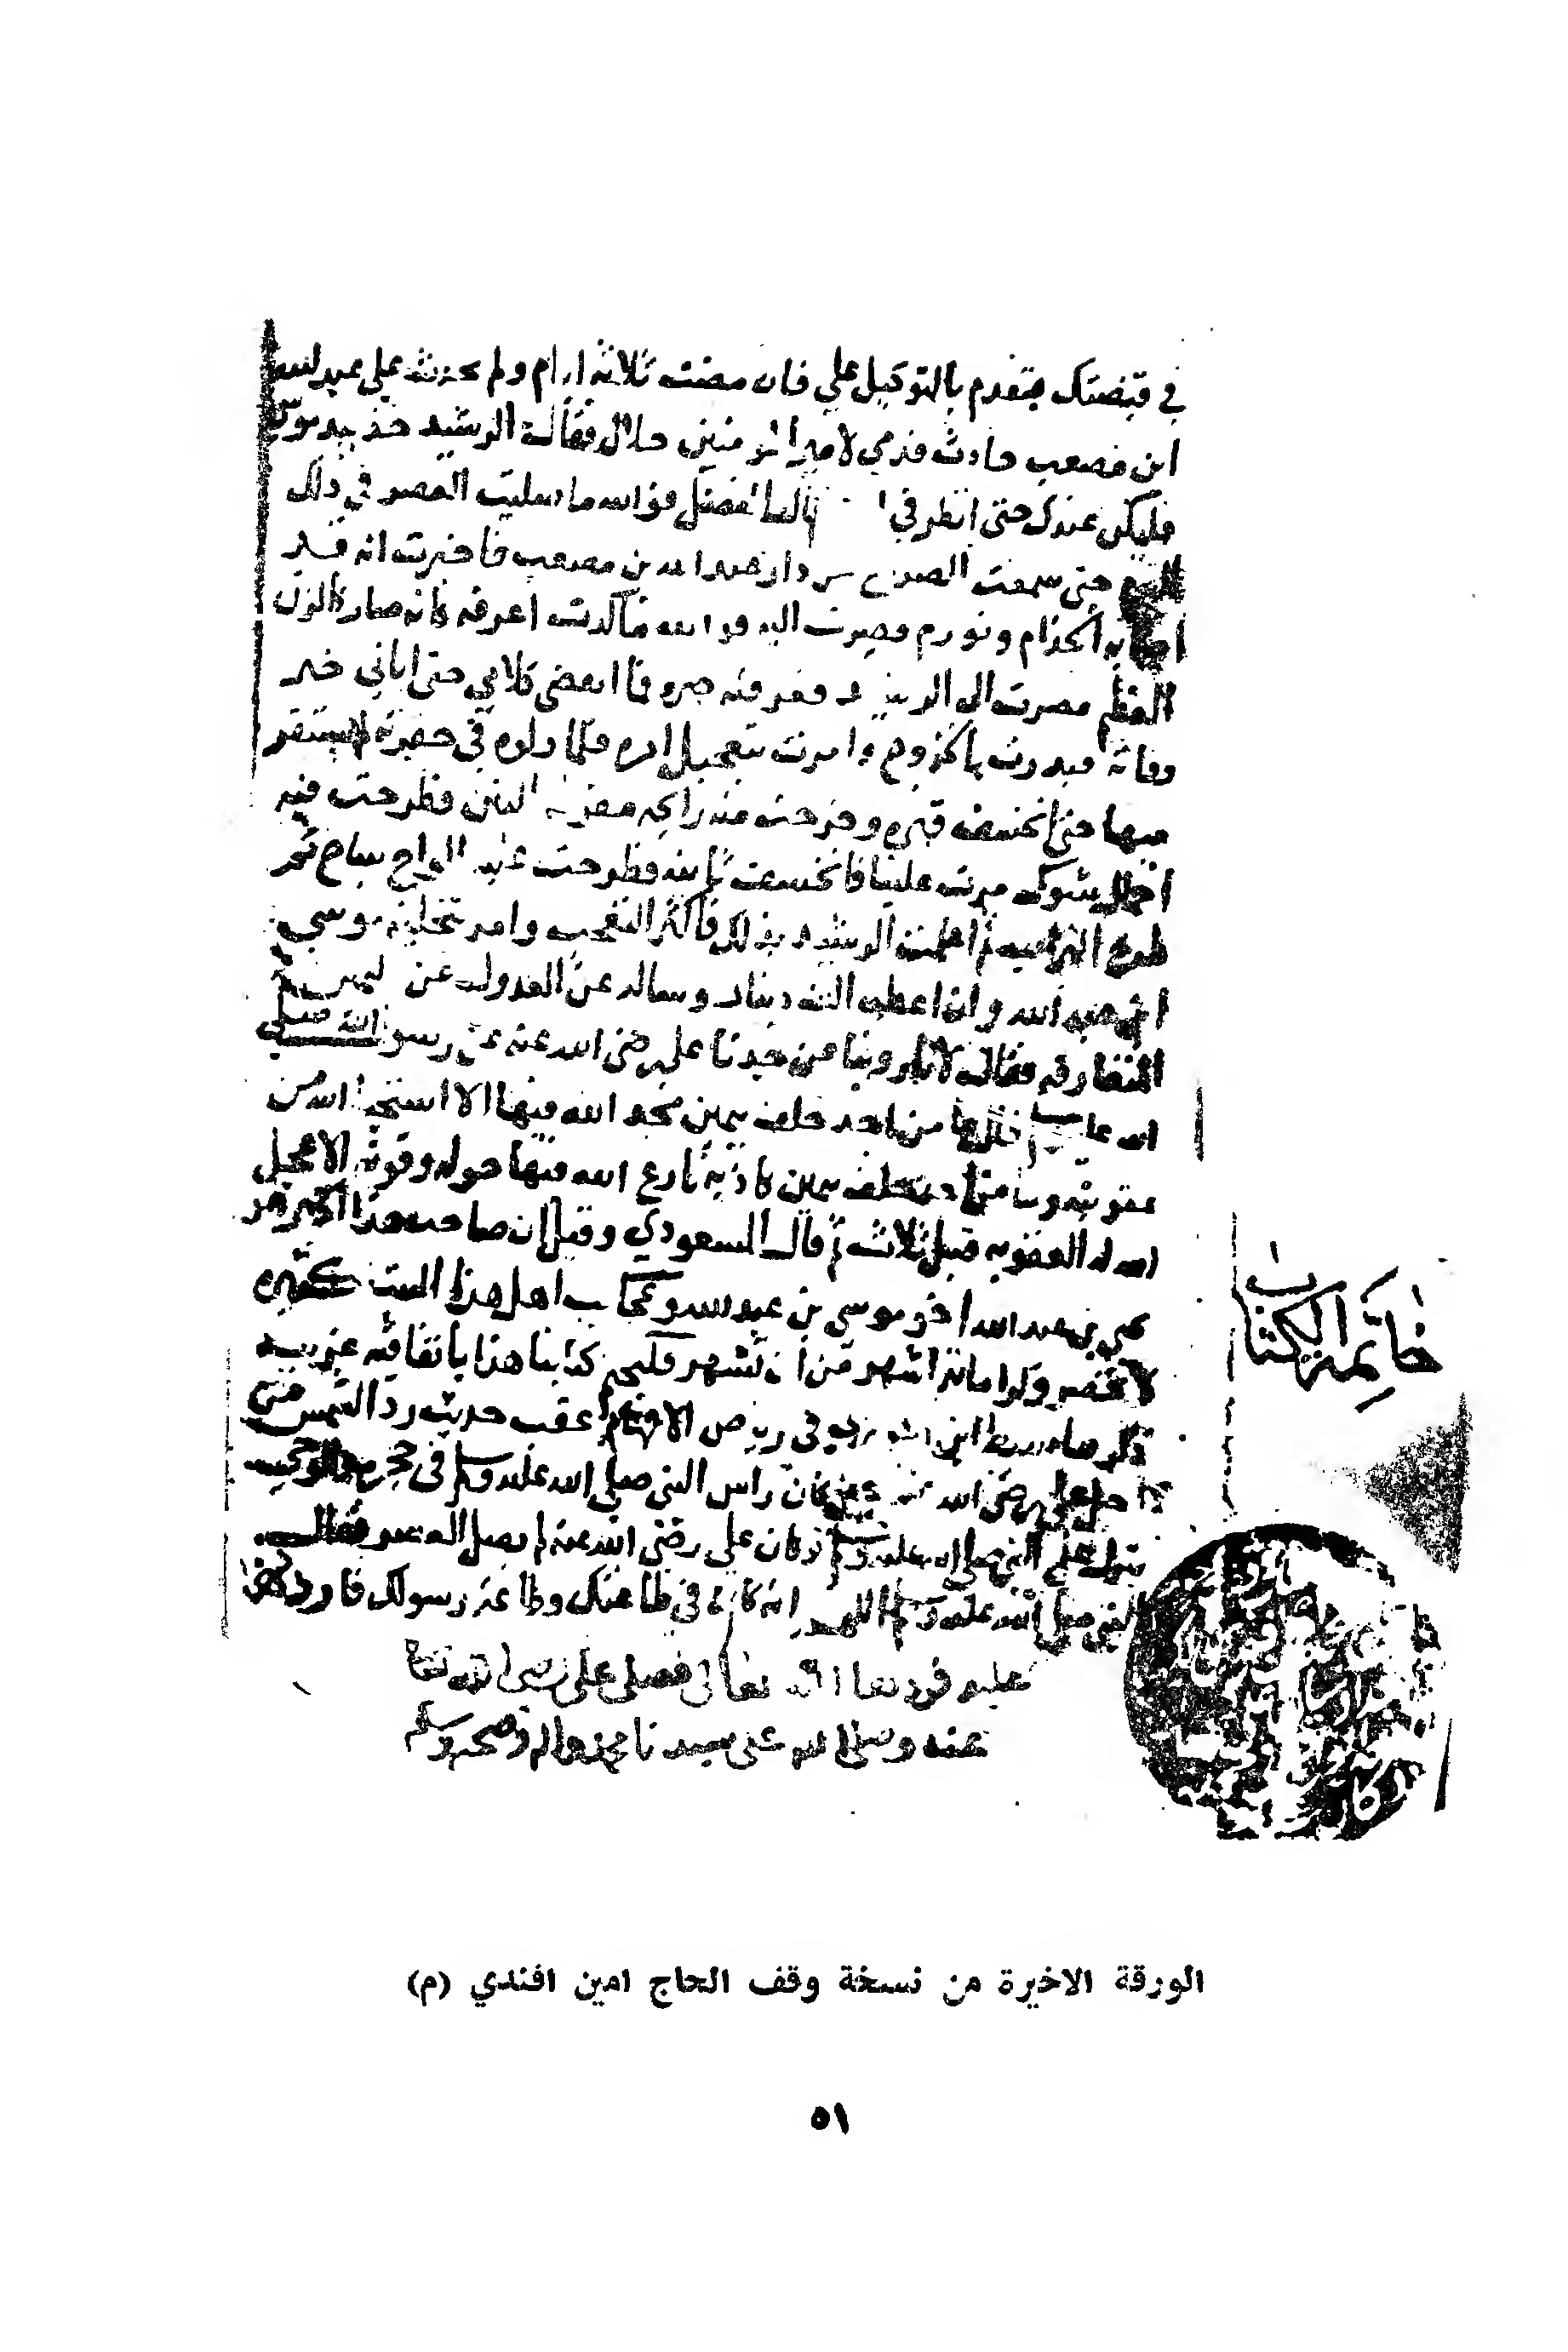 في قبضتك فتقدم بالتوكيل علي فان مضت ثلاثة ايام ولم يحدث على عبد الله
ابن مصعب حادث فدمي لامير المؤمنين حلال فقال الرشيد خذ بيد موسى
فليكن عندك حتى انظر في قال الفضل فوالله ما صليت العصر في ذلك
حتى سمعت الصراخ من دار عبد الله بن مصعب فاخبرت انه قد
اصابه الجذام وتورم فصرت اليه فوالله ما كدت اعرفه لانه صار كالزق
العظيم فصرت الى الرشيد فعرفته خبره فما انقضى كلامي حتى اتاني خبر
وفاته فبدرت بالخروج وامرت بتعجيل امره فلما دلوه في حفرته لم يستقر
فيها حتى انخسف قبره وخرجت منه رائحة مفرطة النتن فطرحت فيه
احمال شوك مرت علينا فانخسفت ثانية فطرحت عليه الواح ساج
طرح التراب ثم اعلمت الرشيد بذلك فاكثر التعجب وامر بتخلية موسى
ابن عبد الله وان اعطيه الف دينار وساله عن العدول عن اليمين
المتعارفة فقال لانا روينا عن جدنا علي رضي الله عنه عن رسول الله صلى
الله عليه من احد حلف بيمين مجد الله فيها الا استحيا الله من
عقوبته وما من احد حلف بيمين كاذبة نازع الله فيها حوله وقوته الا عجل
الله له العقوبة قبل ثلاث ثم قال المسعودي وقيل ان صاحب هذا الخبر هو
يحيى بن عبد الله اخو موسى بن عبد الله وعجائب اهل هذا البيت كثيرة
لا تنحصر وكراماتهم اشهر من ان تشهر فليختم كتابنا هذا باتفاقية غريبة
ذكرها في رياض الافهام عقب حديث رد الشمس
علي رضي الله عنه كان راس النبي صلى الله عليه وسلم في حجره والوحي
ينزل على النبي صلى الله عليه وسلم وكان علي رضي الله عنه لم يصل العصر فقال
النبي صلى الله عليه وسلم اللهم انه كان في طاعتك وطاعة رسولك فاردد
عليه فردها الله تعالى فصلى علي رضي الله تعالى
عنه وصلى الله على سيدنا محمد واله وصحبه وسلم
خاتمة الكتاب
الورقة الاخيرة من نسخة وقف الحاج امين افندي (م)
٥١